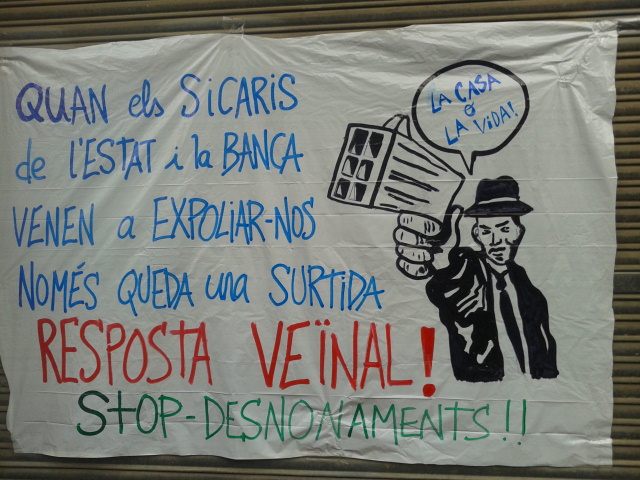 QUAN els SiCARiS
de l'ESTAT i la BANCA
VENEN a EXPOLiAR-NOS
NOMÉS QUEDA una SURTiDA
RESPOSTA VEÏNAL!
StOP-DESNONAMENTS!!
LA CASA
O
LA ViDA!